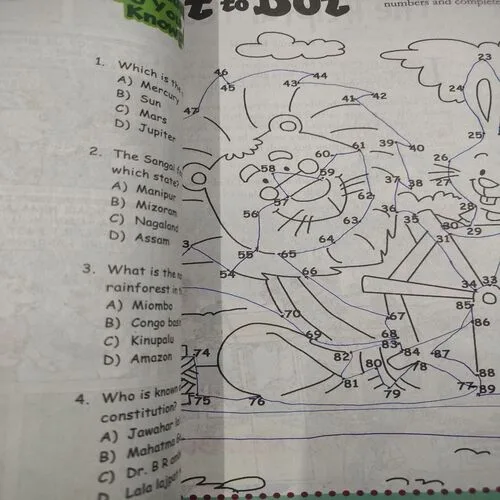 you
Know
t to Dot
numbers and complete
1. Which is the
A) Mercury
B) Sun
C) Mars
D) Jupiter
2. The Sangai
which state
A) Manipur
B) Mizoram
C) Nagaland
D) Assam
3. What is the
rainforest in
A) Miombo
B) Congo
C) Kinupalu
D) Amazon
4. Who is known
constitution?
A) Jawahar
B) Mahatma
C) Dr. B R
D) Lala lajpat
23
46
45
43
44
24
41
42
47
25
39
40
61
60
26
58
59
37
38
27
57
62
36
28
56
63
35
30
29
64
31
3
55
65
54
66
34
33
85
70
67
86
69
68
83
74
82
84
87
80
78
88
81
79
77
89
75
76